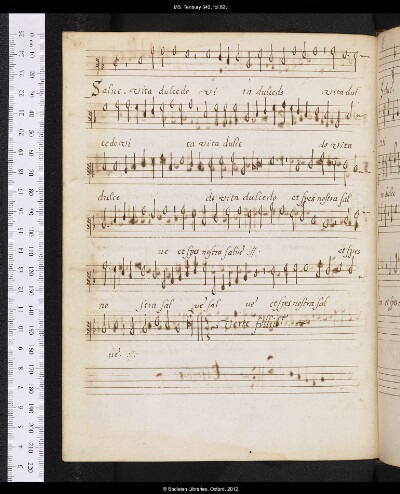 MS. Tenbury 342, fol.82v
Salve. vita dulcedo vi ta dulcedo vita dul
cedo vi ta vita dulce do vita
dulce do vita dulcedo et spes nostra sal
ve et spes nostra salve :||: et spes
no stra sal ve sal ve et spes nostra sal
ve. :||:
© Bodleian Libraries, Oxford, 2012